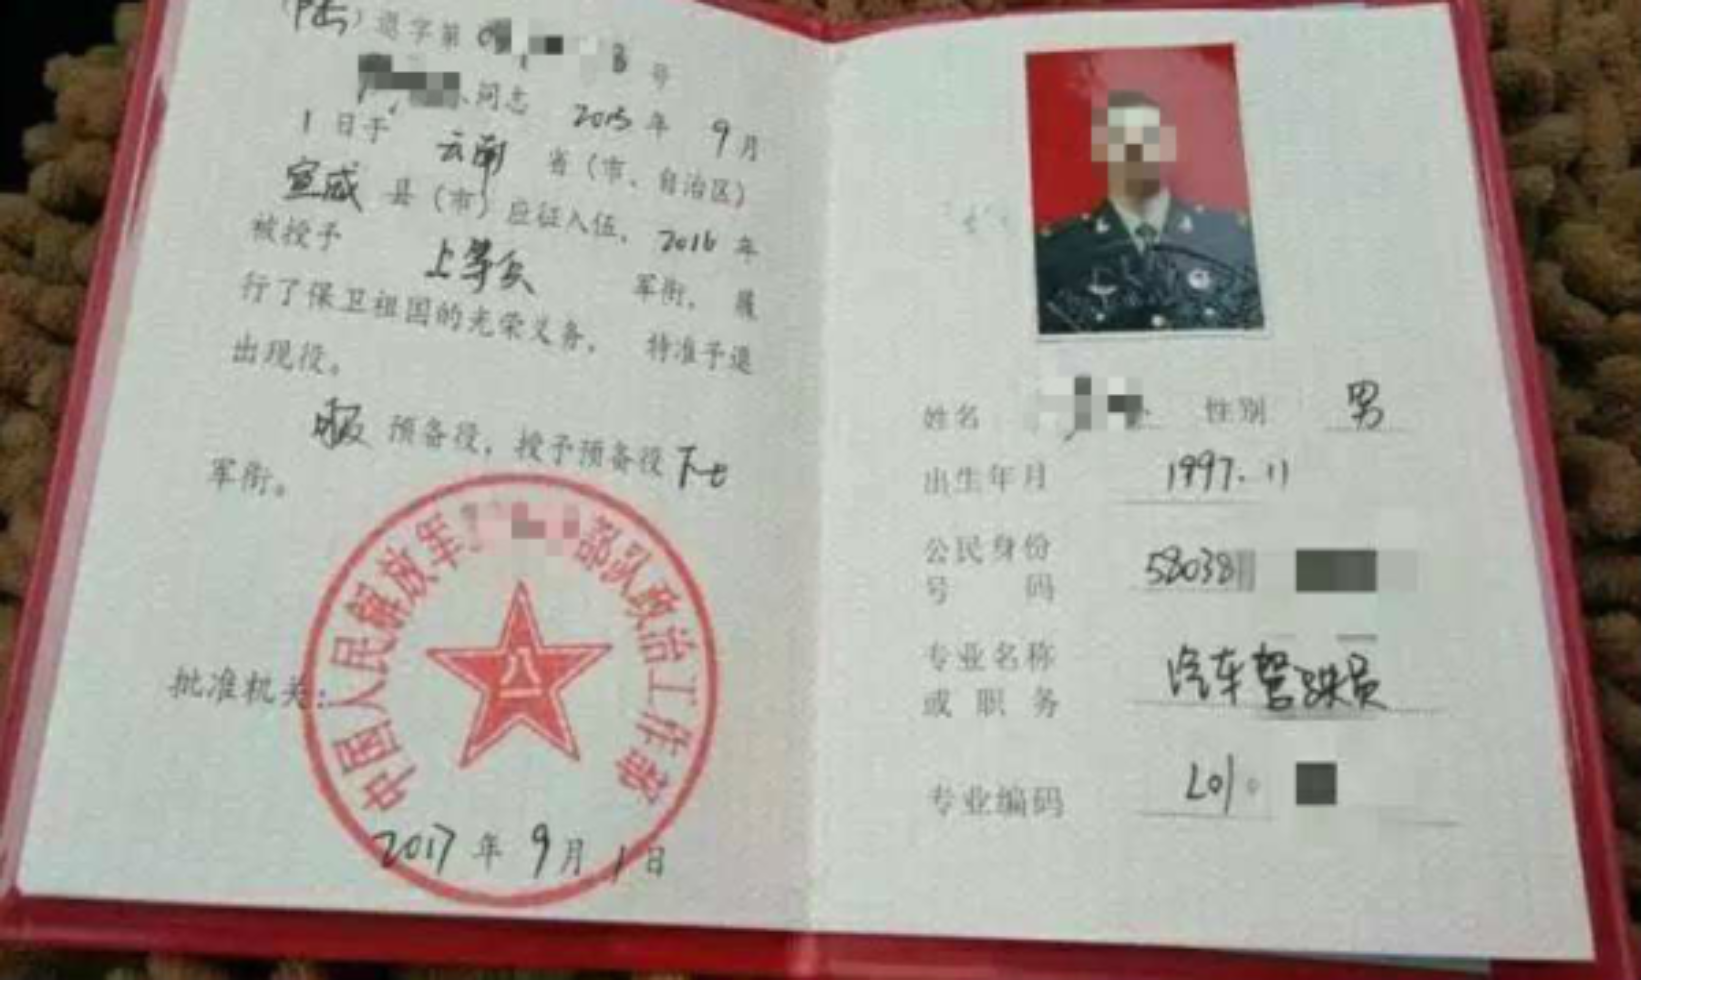 （陆）退字第 号
同志 2015年 9月
1日于 云南 省（市、自治区）
宣威 县（市）应征入伍，2016年
被授予 上等兵 军衔，履
行了保卫祖国的光荣义务，特准予退
出现役。
服 预备役，授予预备役下士
军衔。
批准机关：
中国人民解放军 部队政治工作部
八一
2017年9月1日
姓名 性别 男
出生年月 1997.11
公民身份 58038
号 码
专业名称 汽车驾驶员
或 职 务
专业编码 L01